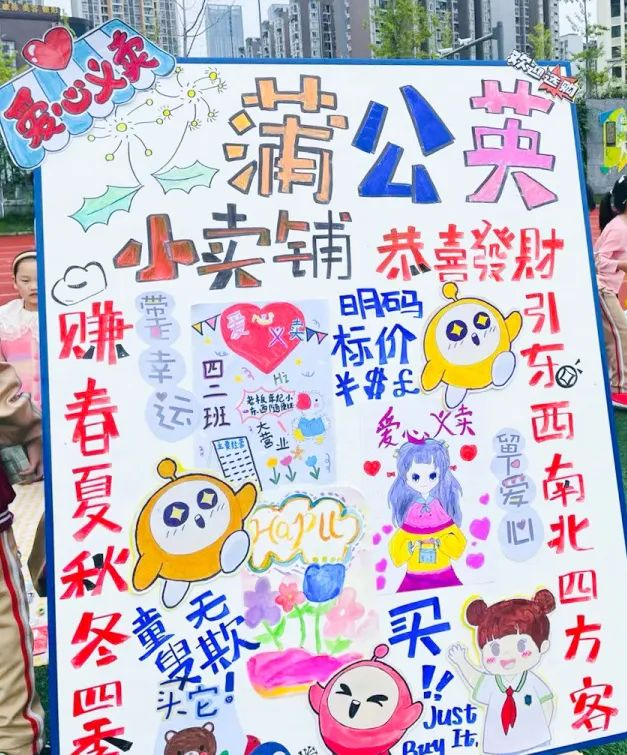 爱心义卖
欢迎选购
蒲公英
小卖铺
恭喜發財
赚春夏秋冬四季
引东西南北四方客
带走幸运
爱心义卖
四二班
Hi
大营业
明码
标价
¥$£
爱心义卖
留下爱心
Happy
童叟无欺
头它!
买!!
Just
Buy It.